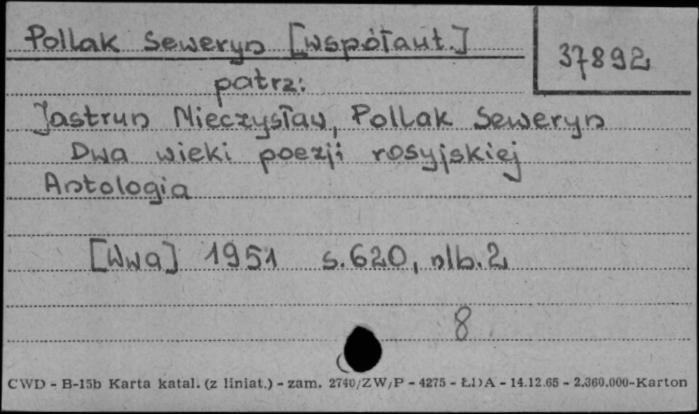 Pollak Seweryn [współaut.]
37892
patrz:
Jastrun Mieczysław, Pollak Seweryn
Dwa wieki poezji rosyjskiej
Antologia
[Wwa] 1951 s.620, nlb.2
8
CWD - B-15b Karta katal. (z liniat.) - zam. 2740/ZW/P - 4275 - ŁDA - 14.12.65 - 2.360.000-Karton